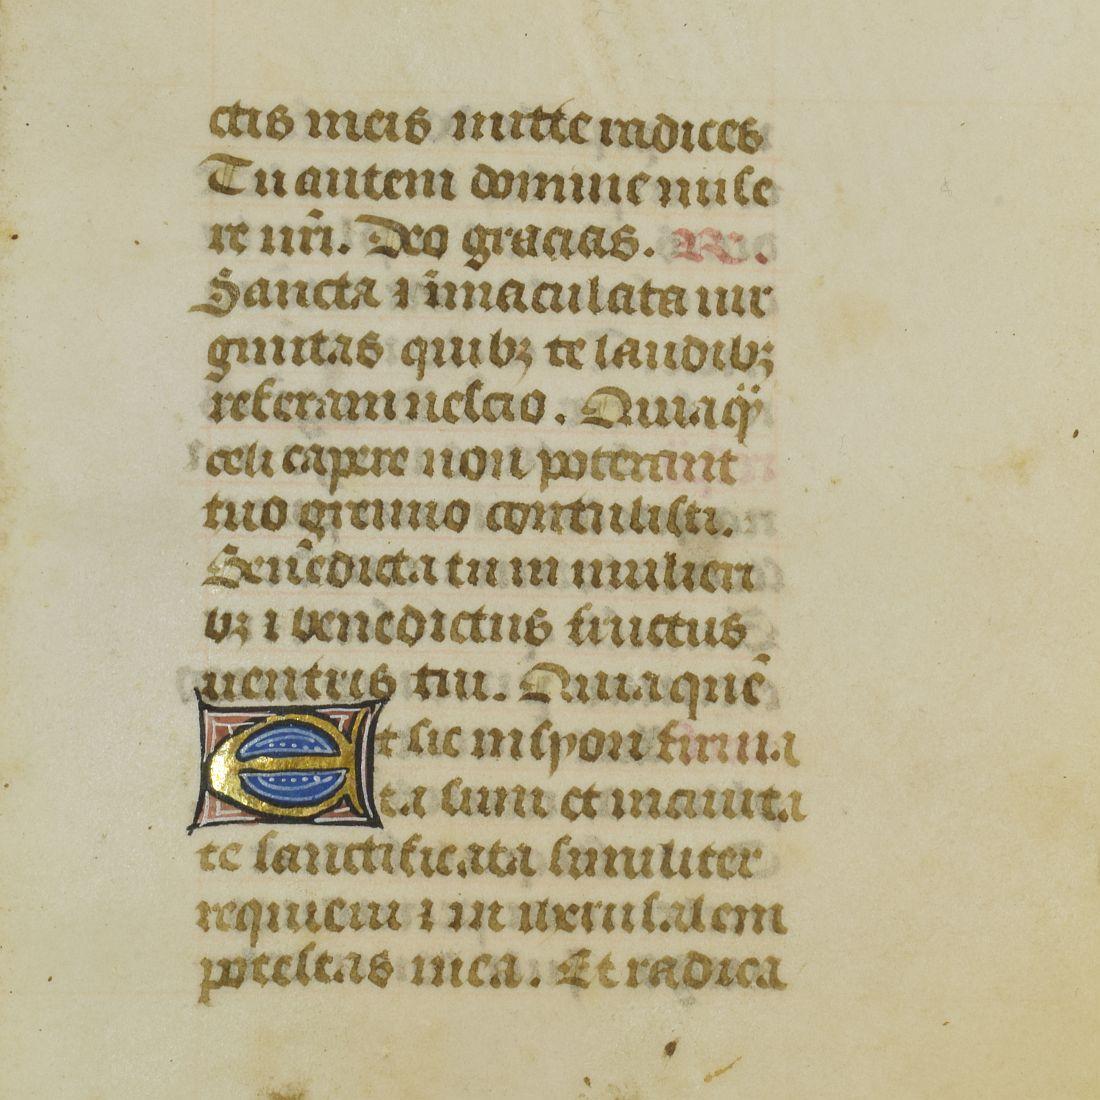 ctis meis mitte radices
Tu autem domine mise
re nr̄i. Deo gracias. R̄.
Sancta ⁊ īmaculata uir
ginitas quibꝫ te laudibꝫ
referam nescio. Quia qͥ
celi capere non poterant
tuo gremio contulisti.
Benedicta tu in mulieri
bꝫ ⁊ benedictus fructus
uentris tui. Quia quē
Et sic in syon firma
ta sum et in ciuita
te sanctificata similiter
requieui ⁊ in iherusalem
potestas mea. Et radica